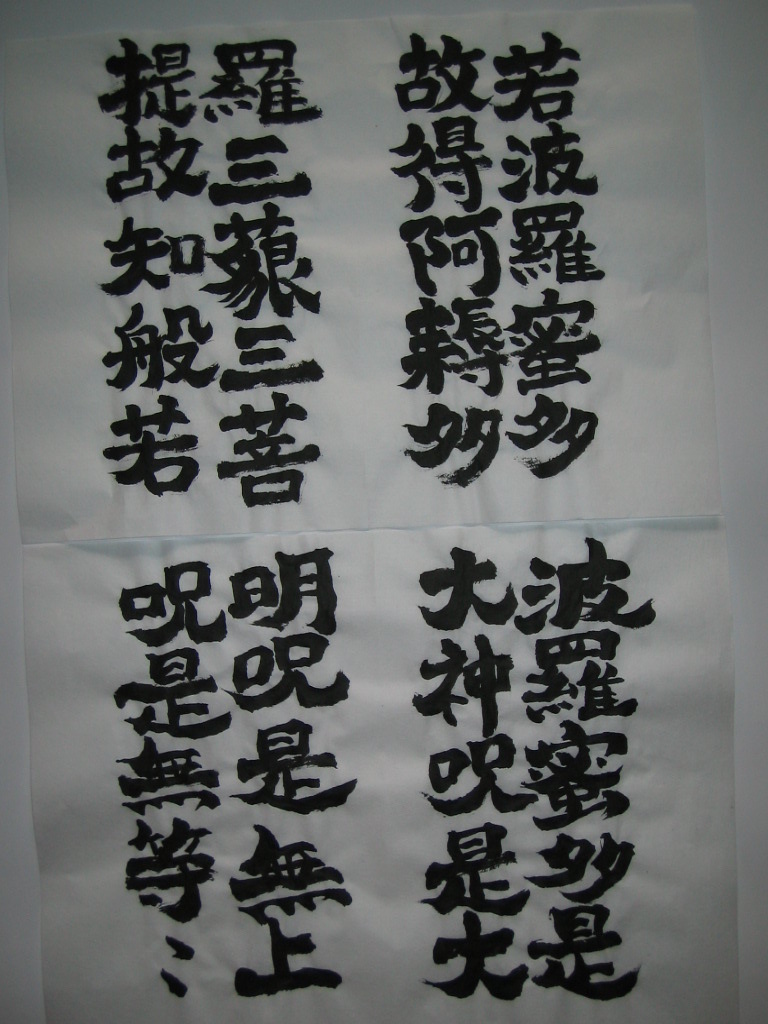 若波羅蜜多
故得阿耨多
羅三藐三菩
提故知般若
波羅蜜多是
大神呪是大
明呪是無上
呪是無等〻